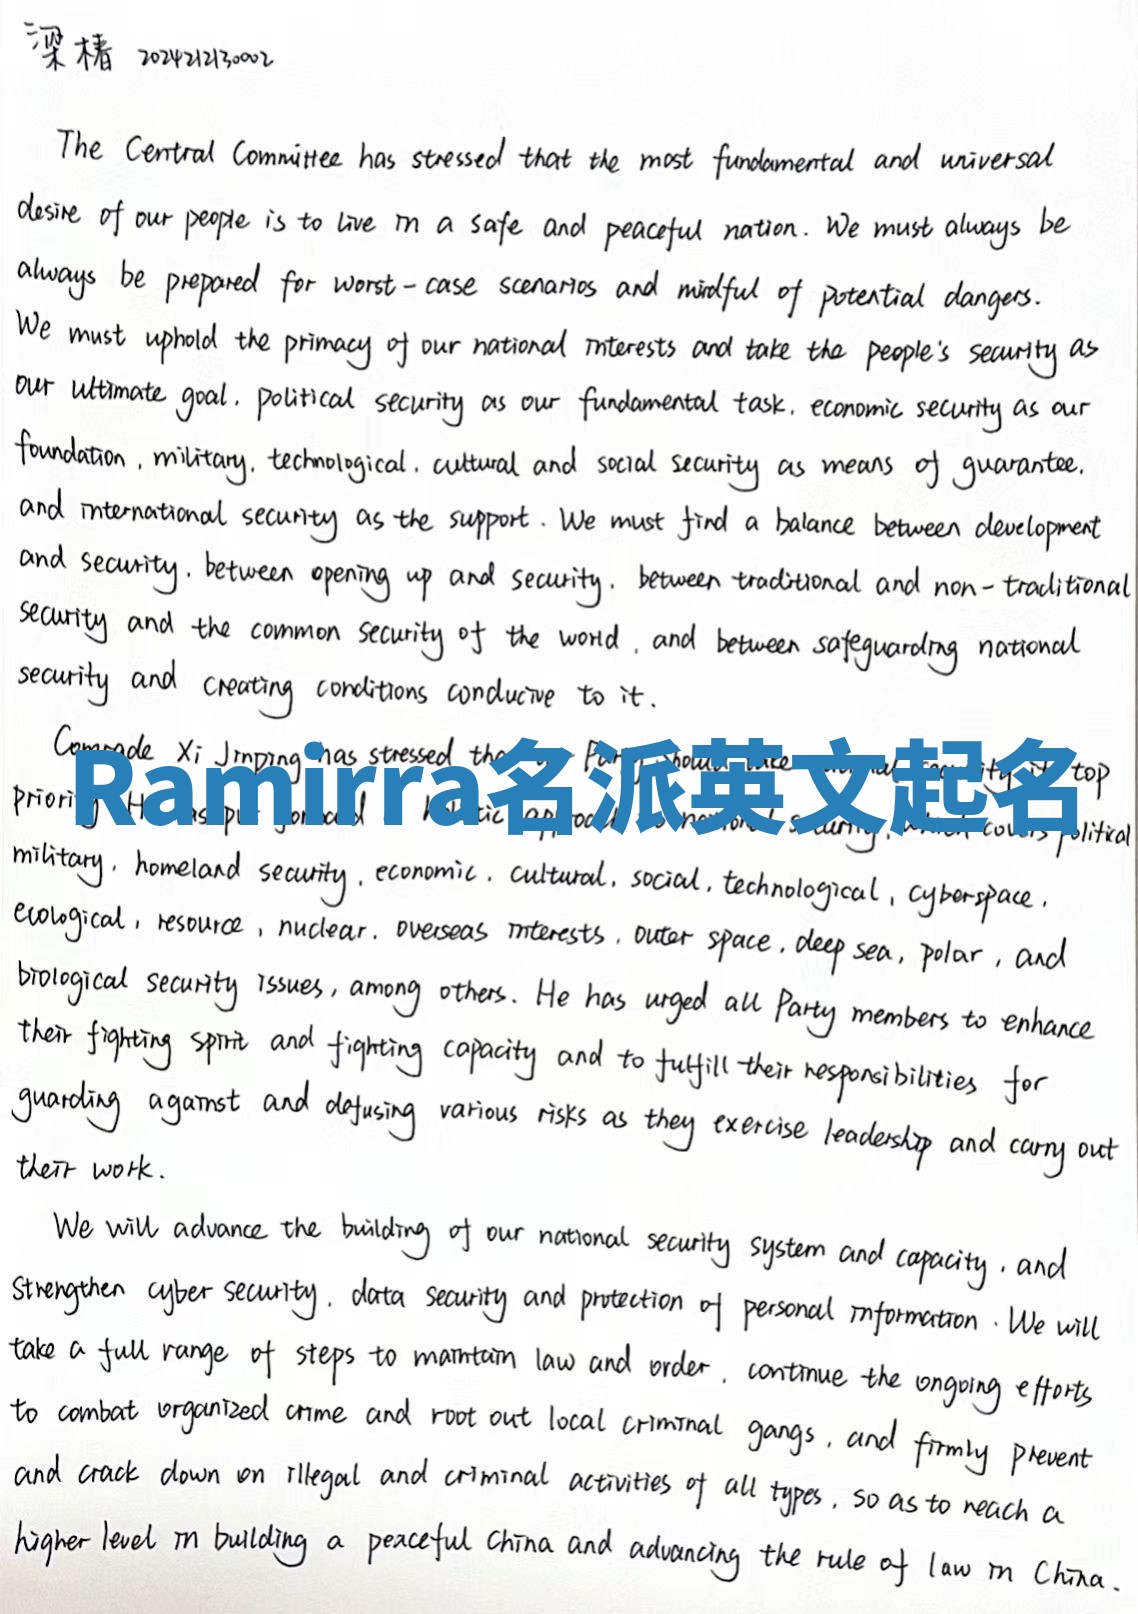 梁椿 2024212130002
The Central Committee has stressed that the most fundamental and universal
desire of our people is to live in a safe and peaceful nation. We must always be
always be prepared for worst-case scenarios and mindful of potential dangers.
We must uphold the primacy of our national interests and take the people's security as
our ultimate goal, political security as our fundamental task, economic security as our
foundation, military, technological, cultural and social security as means of guarantee,
and international security as the support. We must find a balance between development
and security, between opening up and security, between traditional and non-traditional
security and the common security of the world, and between safeguarding national
security and creating conditions conducive to it.
Comrade Xi Jinping has stressed Party should top
Ramirra名派英文起名
covers political
military, homeland security, economic, cultural, social, technological, cyberspace,
ecological, resource, nuclear, overseas interests, outer space, deep sea, polar, and
biological security issues, among others. He has urged all Party members to enhance
their fighting spirit and fighting capacity and to fulfill their responsibilities for
guarding against and defusing various risks as they exercise leadership and carry out
their work.
We will advance the building of our national security system and capacity, and
strengthen cyber security, data security and protection of personal information. We will
take a full range of steps to maintain law and order, continue the ongoing efforts
to combat organized crime and root out local criminal gangs, and firmly prevent
and crack down on illegal and criminal activities of all types, so as to reach a
higher level in building a peaceful China and advancing the rule of law in China.